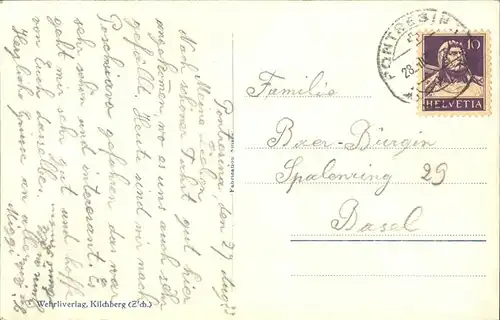 Pontresina, den 29. Aug. 23
Meine Lieben
Nach schöner Fahrt gut hier
angekommen, wo es uns auch sehr
gefällt. Heute sind wir nach
Poschiavo gefahren das war
sehr schön und interesant. Es
geht mir sehr gut und hoffe
von Euch dasselbe.
Herzliche Grüsse an alle
Miggi
PONTRESINA
28
10
HELVETIA
Familie
Baer-Dürgin
Spalenring 29
Basel
Wehrliverlag, Kilchberg (Zch.)